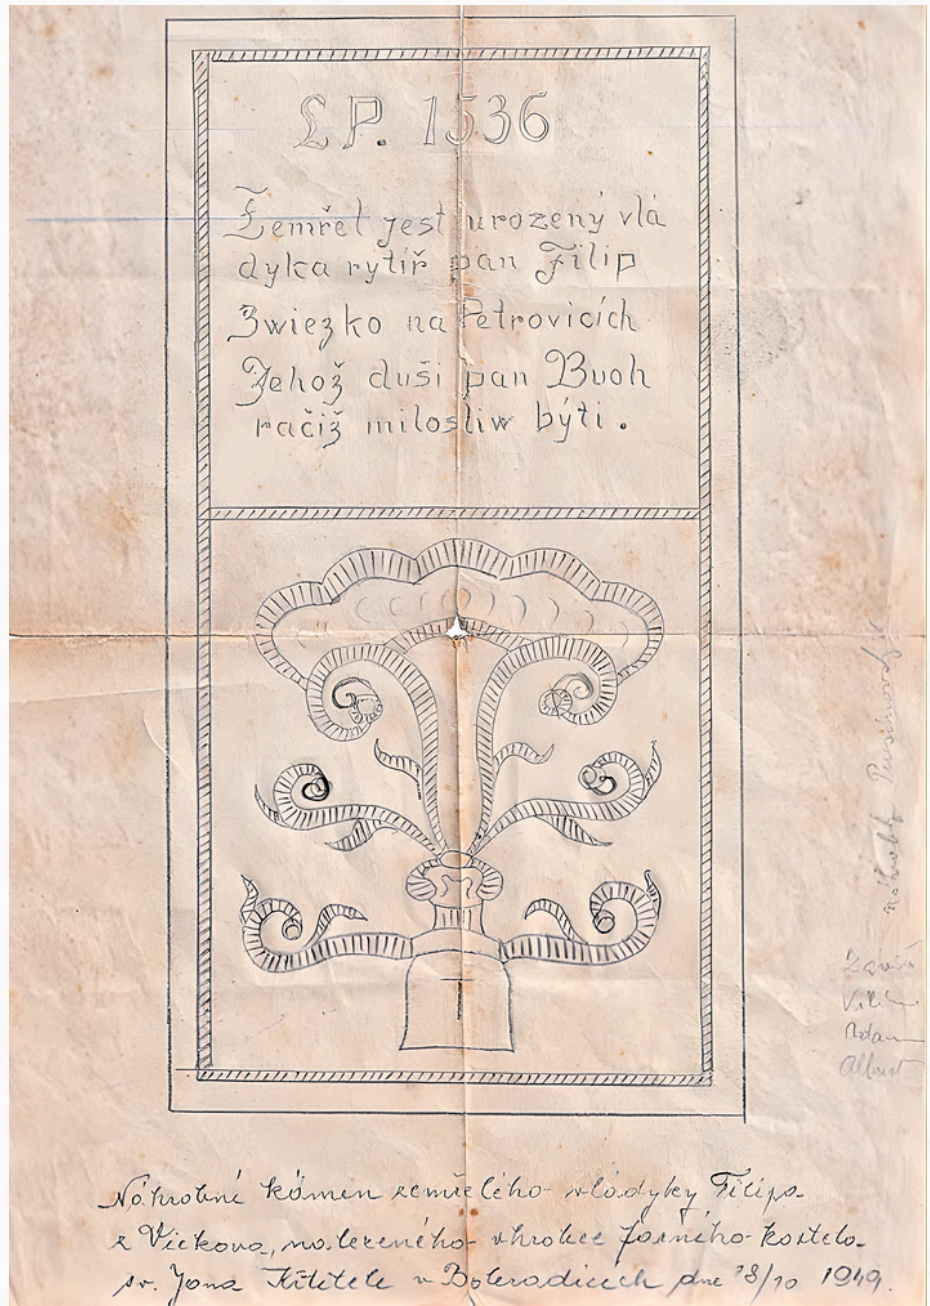 L.P. 1536
Zemřel jest urozený vlá
dyka rytíř pan Filip
Zwiezko na Petrovicích
Jehož duši pan Buoh
račiž milosliw býti.
Náhrobní kámen zemřelého vládyky Filipa
z Vickova, nalezeného v hrobce farního kostela
sv. Jana Křtitele v Boleradicích dne 8/10 1949.
náhrobky
Vili
Adam
Albert